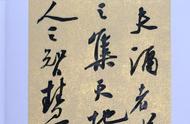 夫酒者
之集天地
人之智慧